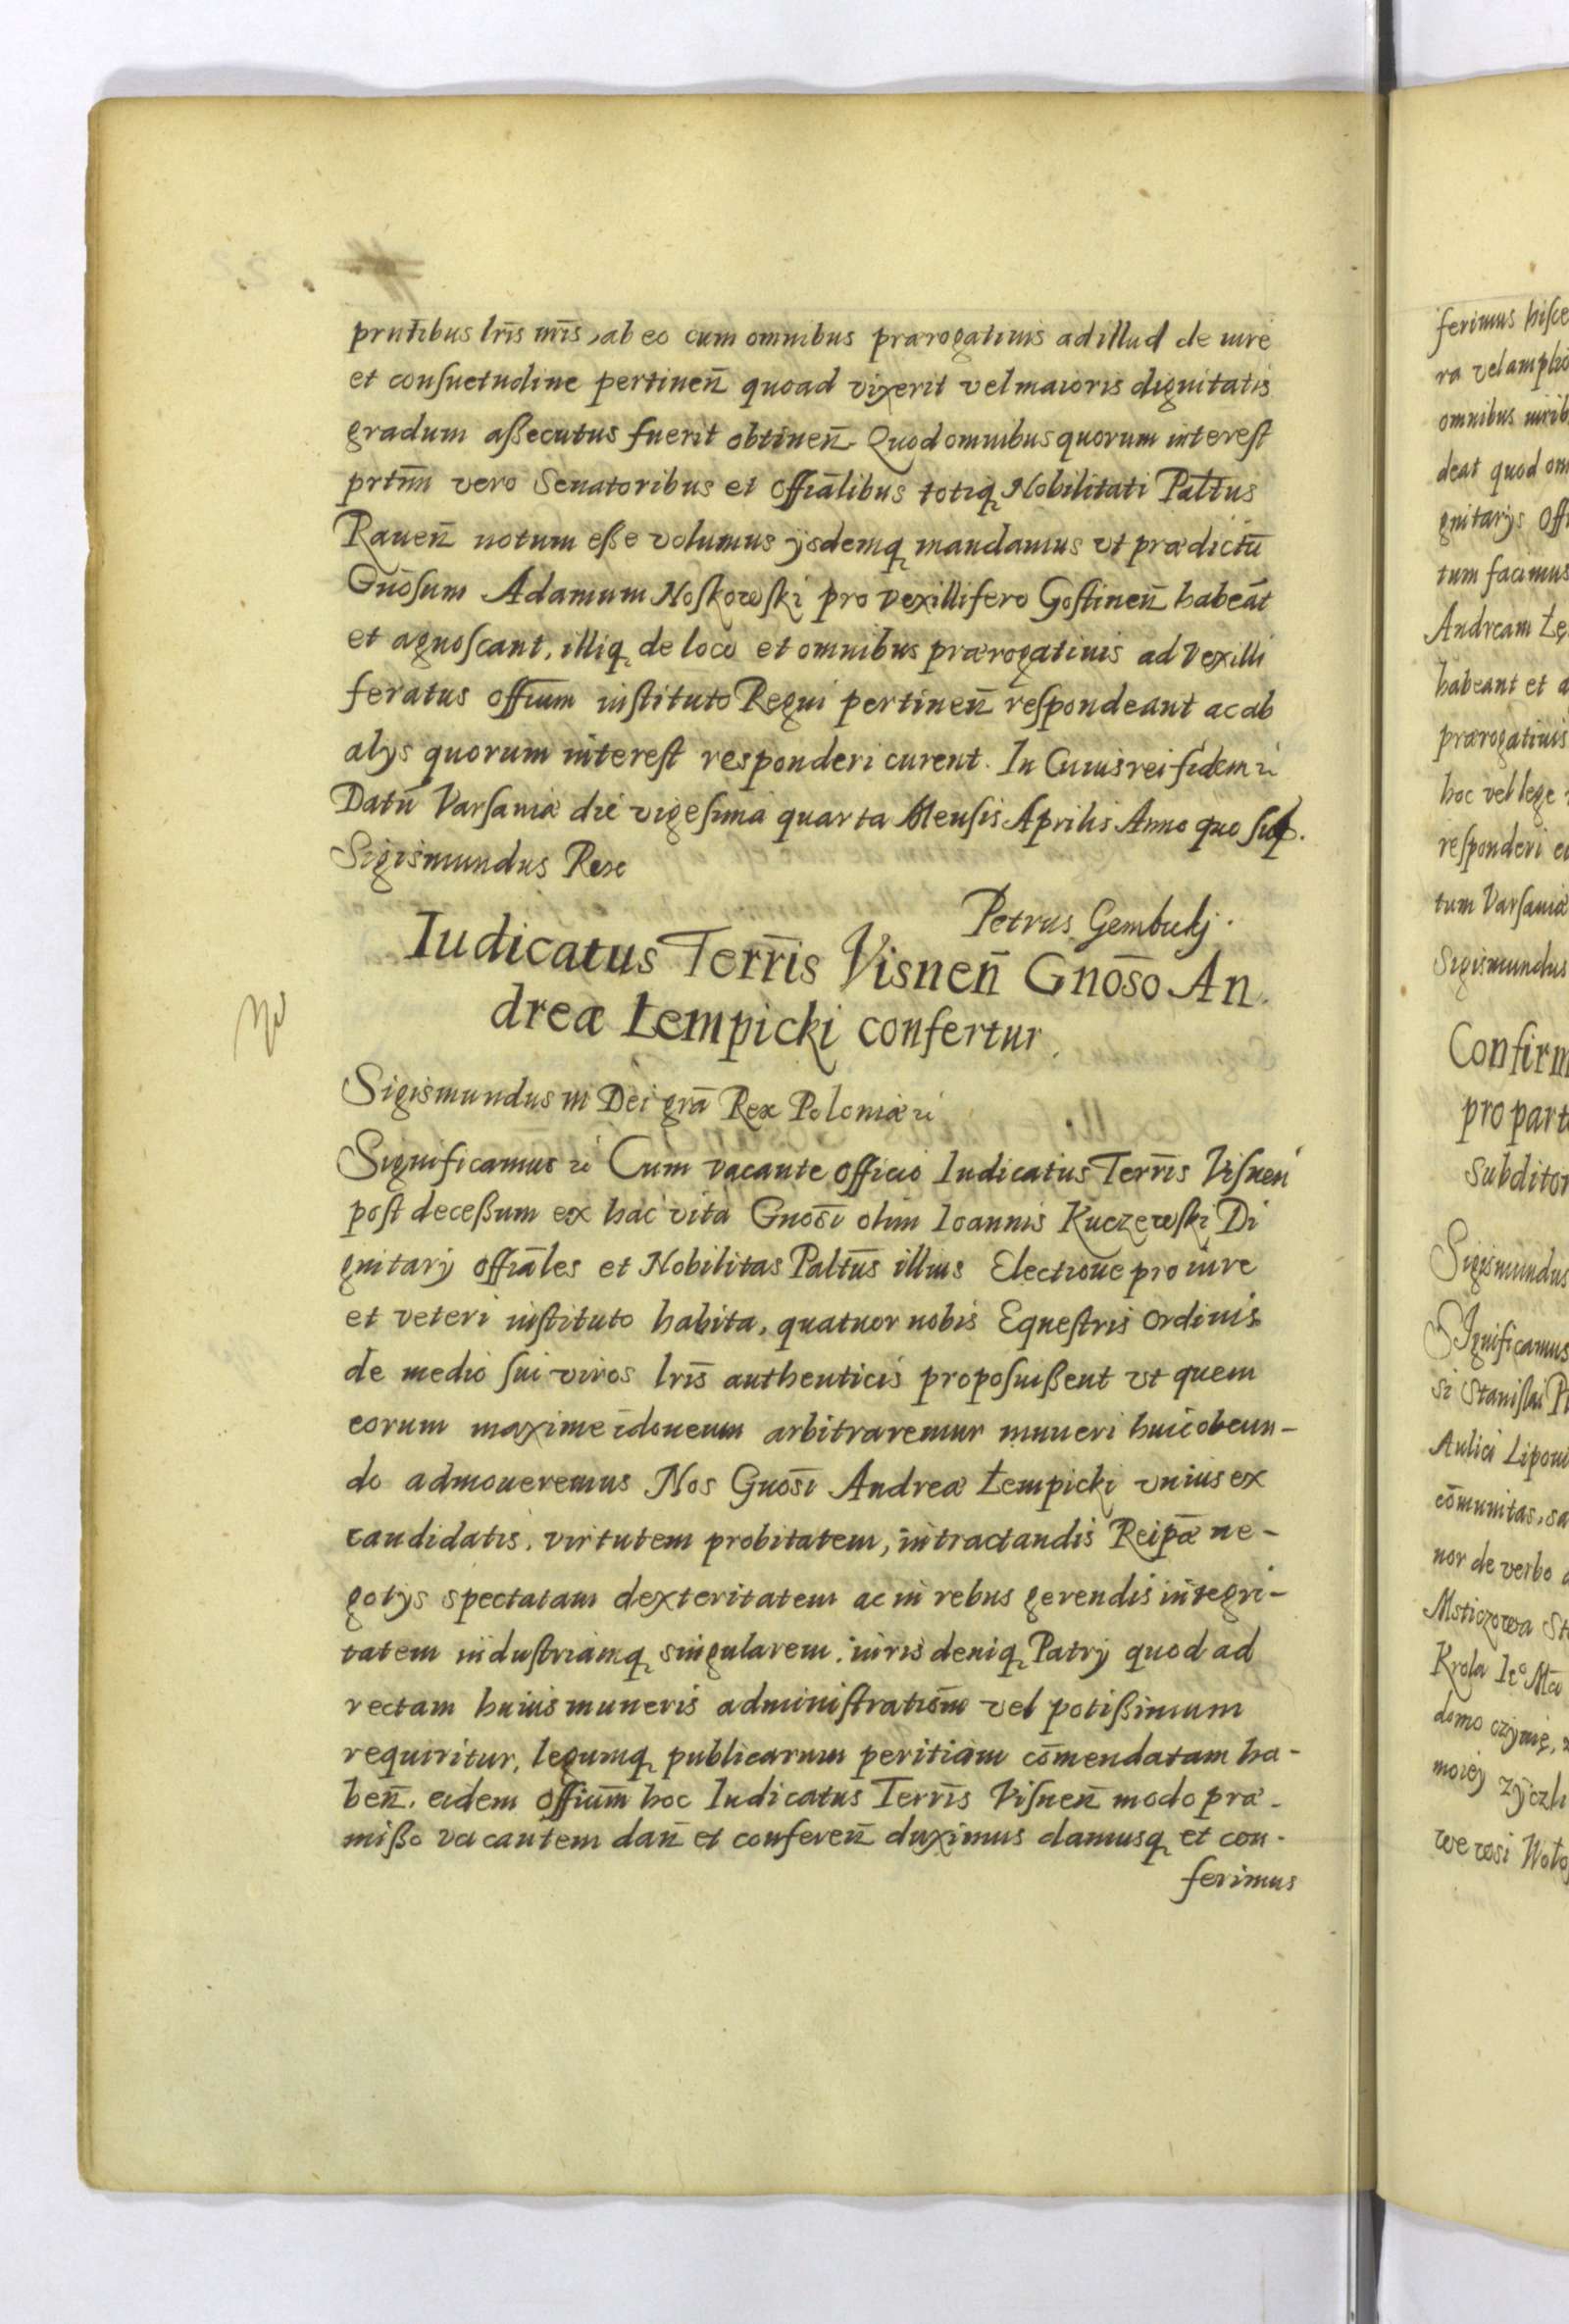 prntibus lris nris, ab eo cum omnibus prærogatiuis ad illud de iure
et consuetudine pertineñ quoad vixerit vel maioris dignitatis
gradum aßecutus fuerit obtineñ. Quod omnibus quorum interest
prtim̃ vero Senatoribus et offiãlibus totiq, Nobilitati Paltus
Raueñ notum eße volumus ijsdemq, mandamus vt prædictũ
Gnosum Adamum Noskowski pro Vexillifero Gostineñ habeãt
et agnoscant, illiq, de loco et omnibus prærogatiuis ad Vexilli
feratus offium instituto Regni pertineñ respondeant ac ab
alys quorum interest responderi curent. In Cuius rei fidem ꝛc
Datũ Varsauiæ die vigesima quarta Mensis Aprilis Anno quo sup.
Sigismundus Rex
Petrus Gembickj.
Iudicatus Terrĩs Visneñ Gnõso An
dreæ Łempicki confertur.
Sigismundus III Dei grã Rex Poloniæ ꝛc
Significamus ꝛc Cum vacante officio Iudicatus Terrĩs Visneñ
post deceßum ex hac vita Gnosĩ olim Ioannis Kuczewski Di
gnitarij offiãles et Nobilitas Paltũs illius Electione pro iure
et veteri instituto habita, quatuor nobis Equestris Ordinis
de medio sui viros lrĩs authenticis proposuißent vt quem
eorum maxime idoneum arbitraremur muneri huic obeun-
do admoueremus Nos Gnosĩ Andreæ Łempicki vnius ex
candidatis, virtutem probitatem, in tractandis Reipæ̃ ne-
gotys spectatam dexteritatem ac in rebus gerendis integri-
tatem industriamq, singularem, iuris deniq, Patrij quod ad
rectam huius muneris administratiõm vel potißimum
requiritur, legumq, publicarum peritiam cõmendatam ha-
beñ. eidem offium̃ hoc Iudicatus Terrĩs Visneñ modo præ-
mißo vacantem dañ et confereñ duximus damusq, et con-
ferimus
ferimus hisce
ra vel amplio
omnibus iurib
deat quod om
gnitarys Offi
tum facimus
Andream Łę
habeant et a
prærogatiuis
hoc vel lege
responderi cu
tum Varsauiæ
Sigismundus
Confirm
pro part
subditor
Sigismundus
SIgnificamus
si Stanislai P
Aulici Lipow
cõmunitas, sa
nor de verbo
Msticzowa St
Krola Ie° Mci
domo czynię,
moiey zyczli
we wsi Woło